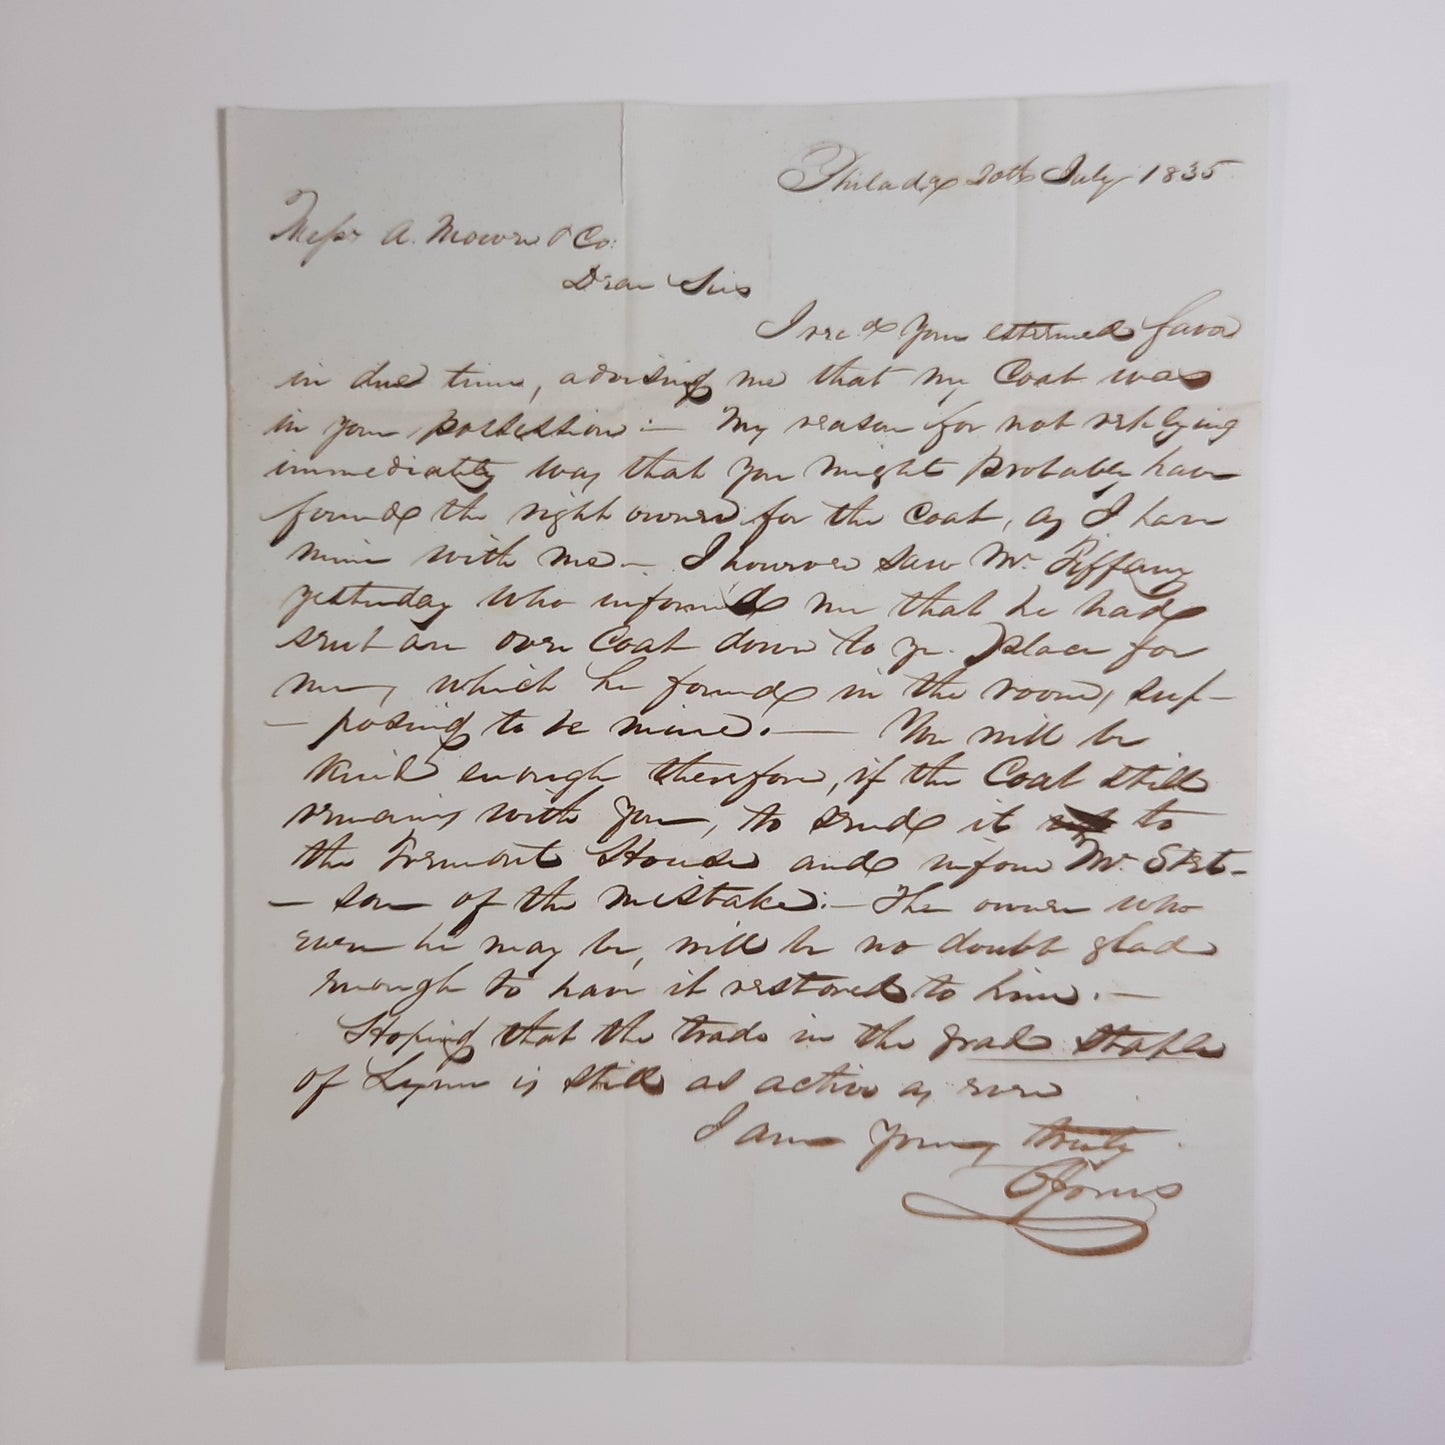 Philada 20th July 1835
Messrs A. Mower & Co.
Dear Sirs
I recd your esteemed favor
in due time, advising me that my Coat was
in your possession :— My reason for not replying
immediately was that you might probably have
found the right owner for the Coat, as I have
mine with me — I however saw Mr. Tiffany
yesterday who informed me that he had
sent an over Coat down to yr. place for
me, which he found in the room, sup-
- posing to be mine. — You will be
kind enough therefore, if the Coat still
remains with you, to send it to
the Tremont House and inform Mr. Stet-
- son of the mistake :— The owner who
ever he may be, will be no doubt glad
enough to have it restored to him. —
Hoping that the trade in the grand staple
of Lynn is still as active as ever
I am yours truly